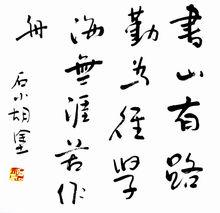 書山有路
勤为徑學
海無涯苦作
舟
石小胡